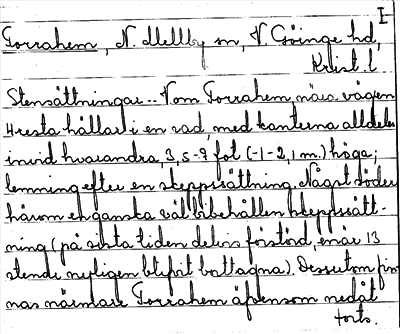 I
Forrahem, N. Mellby sn, V. Göinge hd,
Krist. l
Stensättningar.. V om Forrahem, nära vägen
4 resta hällar i en rad, med kanterna alldeles
invid hvarandra, 3,5-7 fot (-1-2,1 m.) höga;
lemning efter en skeppssättning. Något söder
härom en ganska väl bibehållen skeppssätt-
ning (på sista tiden delvis förstörd, enär 13
stenar nyligen blifvit borttagna). Dessutom fin
nas närmare Forrahem äfvensom nedåt
forts.